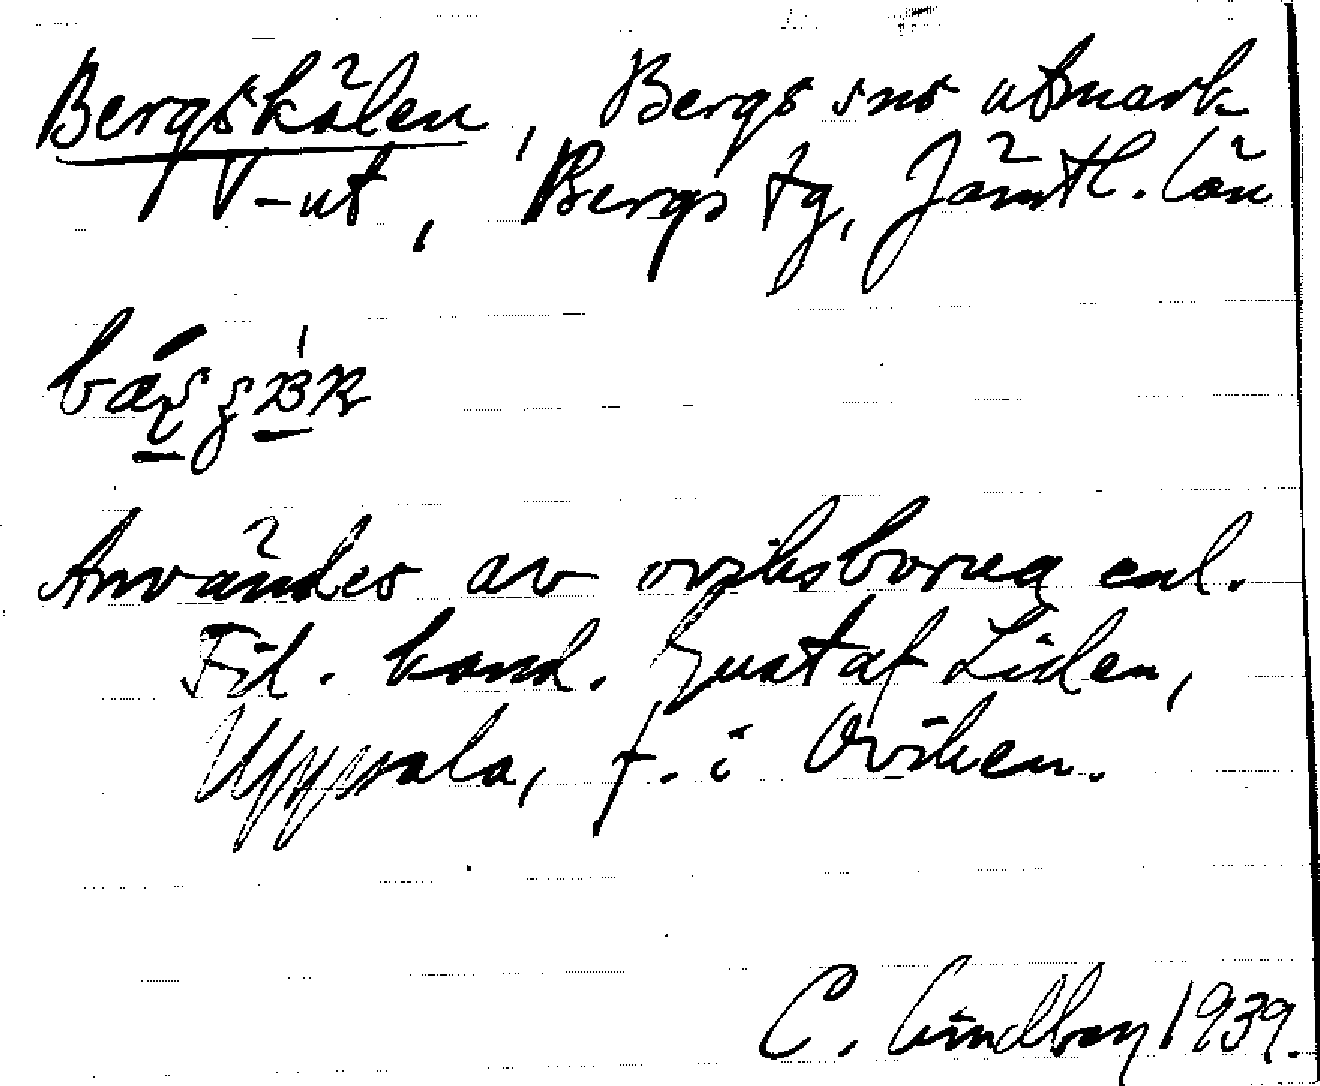 Bergskålen, Bergs sns utmark
V-ut, Bergs tg, Jämtl. län
Användes av oviksborna enl.
Fil. kand. Gustaf Liden,
Uppsala, f. i Oviken.
C. Lindberg 1939.